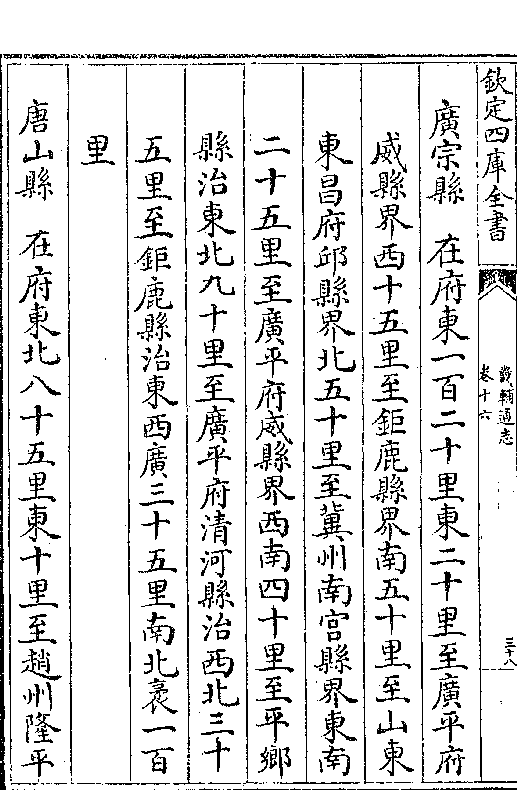 欽定四庫全書
畿輔通志
卷十六
三十八
廣宗縣　在府東一百二十里東二十里至廣平府
威縣界西十五里至鉅鹿縣界南五十里至山東
東昌府邱縣界北五十里至冀州南宮縣界東南
二十五里至廣平府威縣界西南四十里至平鄉
縣治東北九十里至廣平府清河縣治西北三十
五里至鉅鹿縣治東西廣三十五里南北袤一百
里
唐山縣　在府東北八十五里東十里至趙州隆平